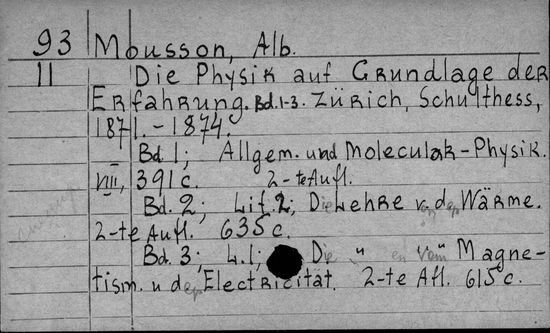 93 Mousson, Alb.
11 Die Physik auf Grundlage der
Erfahrung. Bd. 1-3. Zürich, Schulthess,
1871.-1874.
Bd. 1; Allgem. und Molecular-Physik.
VIII, 391 c. 2-te Aufl.
Bd. 2; Lif. 2, Die Lehre v. der Wärme.
2-te Aufl. 635 c.
Bd. 3; L. 1; Die " en vom Magne-
tism. u der Electricität. 2-te Afl. 615 c.